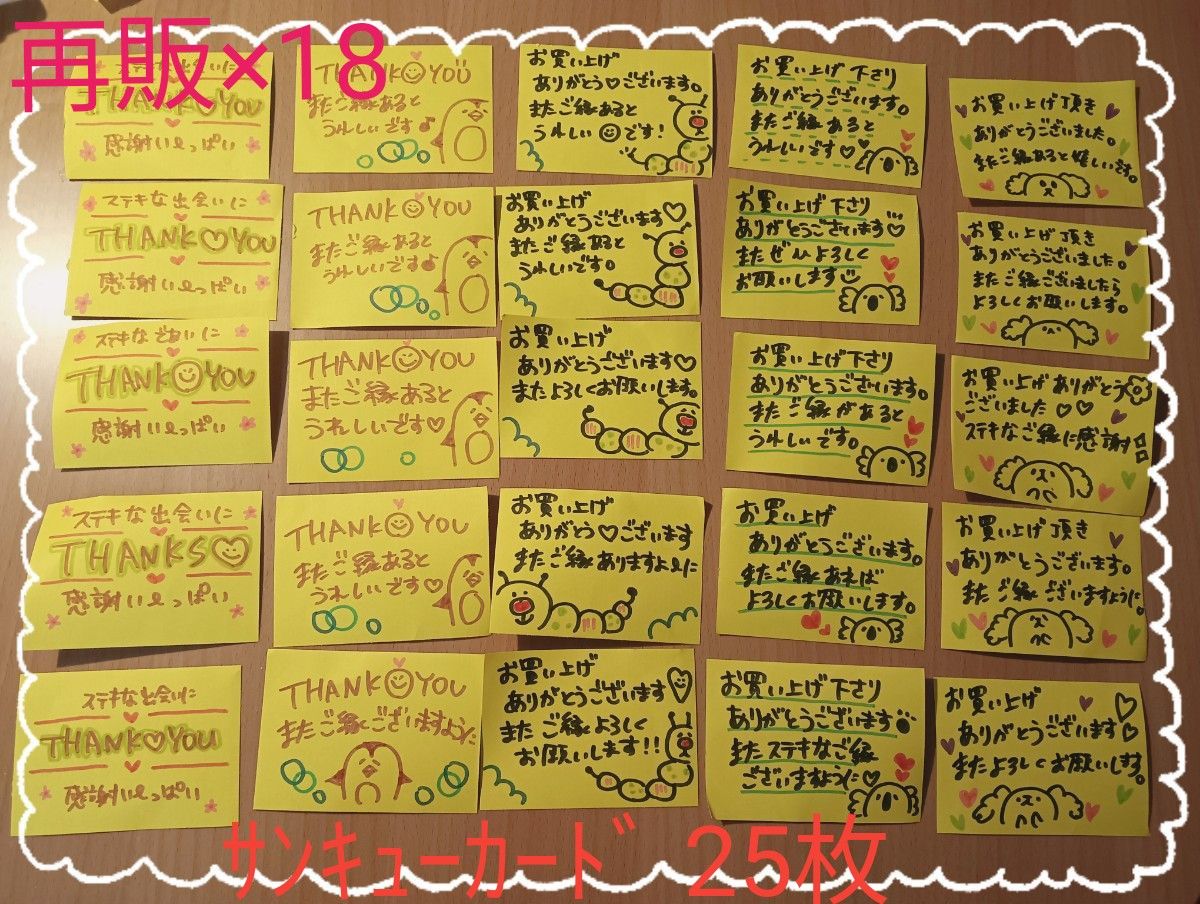 再販×18
ステキな出会いに
THANK♡YOU
感謝いっぱい
THANK☺YOU
またご縁あると
うれしいです♪
お買い上げ
ありがとう♡ございます。
またご縁あると
うれしい☺です!
お買い上げ下さり
ありがとうございます。
またご縁あると
うれしいです♡
お買い上げ頂き
ありがとうございました。
またご縁あると嬉しいです。
ステキな出会いに
THANK♡YOU
感謝いっぱい
THANK☺YOU
またご縁あると
うれしいです♪
お買い上げ
ありがとうございます♡
またご縁あると
うれしいです。
お買い上げ下さり
ありがとうございます♡
またぜひよろしく
お願いします
お買い上げ頂き
ありがとうございました。
またご縁ございましたら
よろしくお願いします。
ステキな出会いに
THANK☺YOU
感謝いっぱい
THANK☺YOU
またご縁あると
うれしいです♡
お買い上げ
ありがとうございます♡
またよろしくお願いします。
お買い上げ下さり
ありがとうございます。
またご縁があると
うれしいです。
お買い上げありがとう
ございました♡♡
ステキなご縁に感謝
ステキな出会いに
THANKS♡
感謝いっぱい
THANK☺YOU
またご縁あると
うれしいです♡
お買い上げ
ありがとう♡ございます
またご縁ありますように
お買い上げ
ありがとうございます。
またご縁あれば
よろしくお願いします。
お買い上げ頂き
ありがとうございます。
またご縁ございますように。
ステキな出会いに
THANK♡YOU
感謝いっぱい
THANK☺YOU
またご縁ございますように
お買い上げ
ありがとうございます
またご縁よろしく
お願いします!!
お買い上げ下さり
ありがとうございます
またステキなご縁
ございますように♡
お買い上げ
ありがとうございます
またよろしくお願いします。
サンキューカード 25枚